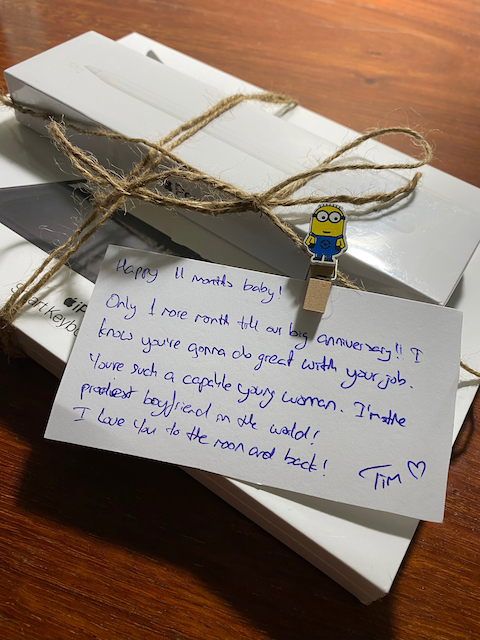 Pe
iP
Smart Keyb
Happy 11 months baby!
Only 1 more month till our big anniversary!! I
know you're gonna do great with your job.
You're such a capable young woman. I'm the
proudest boyfriend in the world!
I love you to the moon and back!
Tim ♡